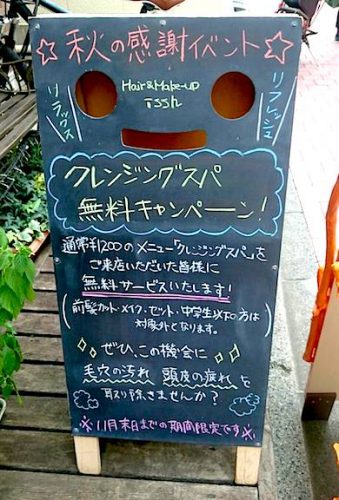 ☆秋の感謝イベント☆
リラックス
Hair&Make-up
issh
リフレッシュ
クレンジングスパ
無料キャンペーン!
通常¥1200のメニュー「クレンジングスパ」を
ご来店いただいた皆様に
無料サービスいたします!
(前髪カット・メイク・セット・中学生以下の方は
対象外となります。)
ぜひ、この機会に
毛穴の汚れ 頭皮の疲れを
取り除きませんか?
※11月末日までの期間限定です※